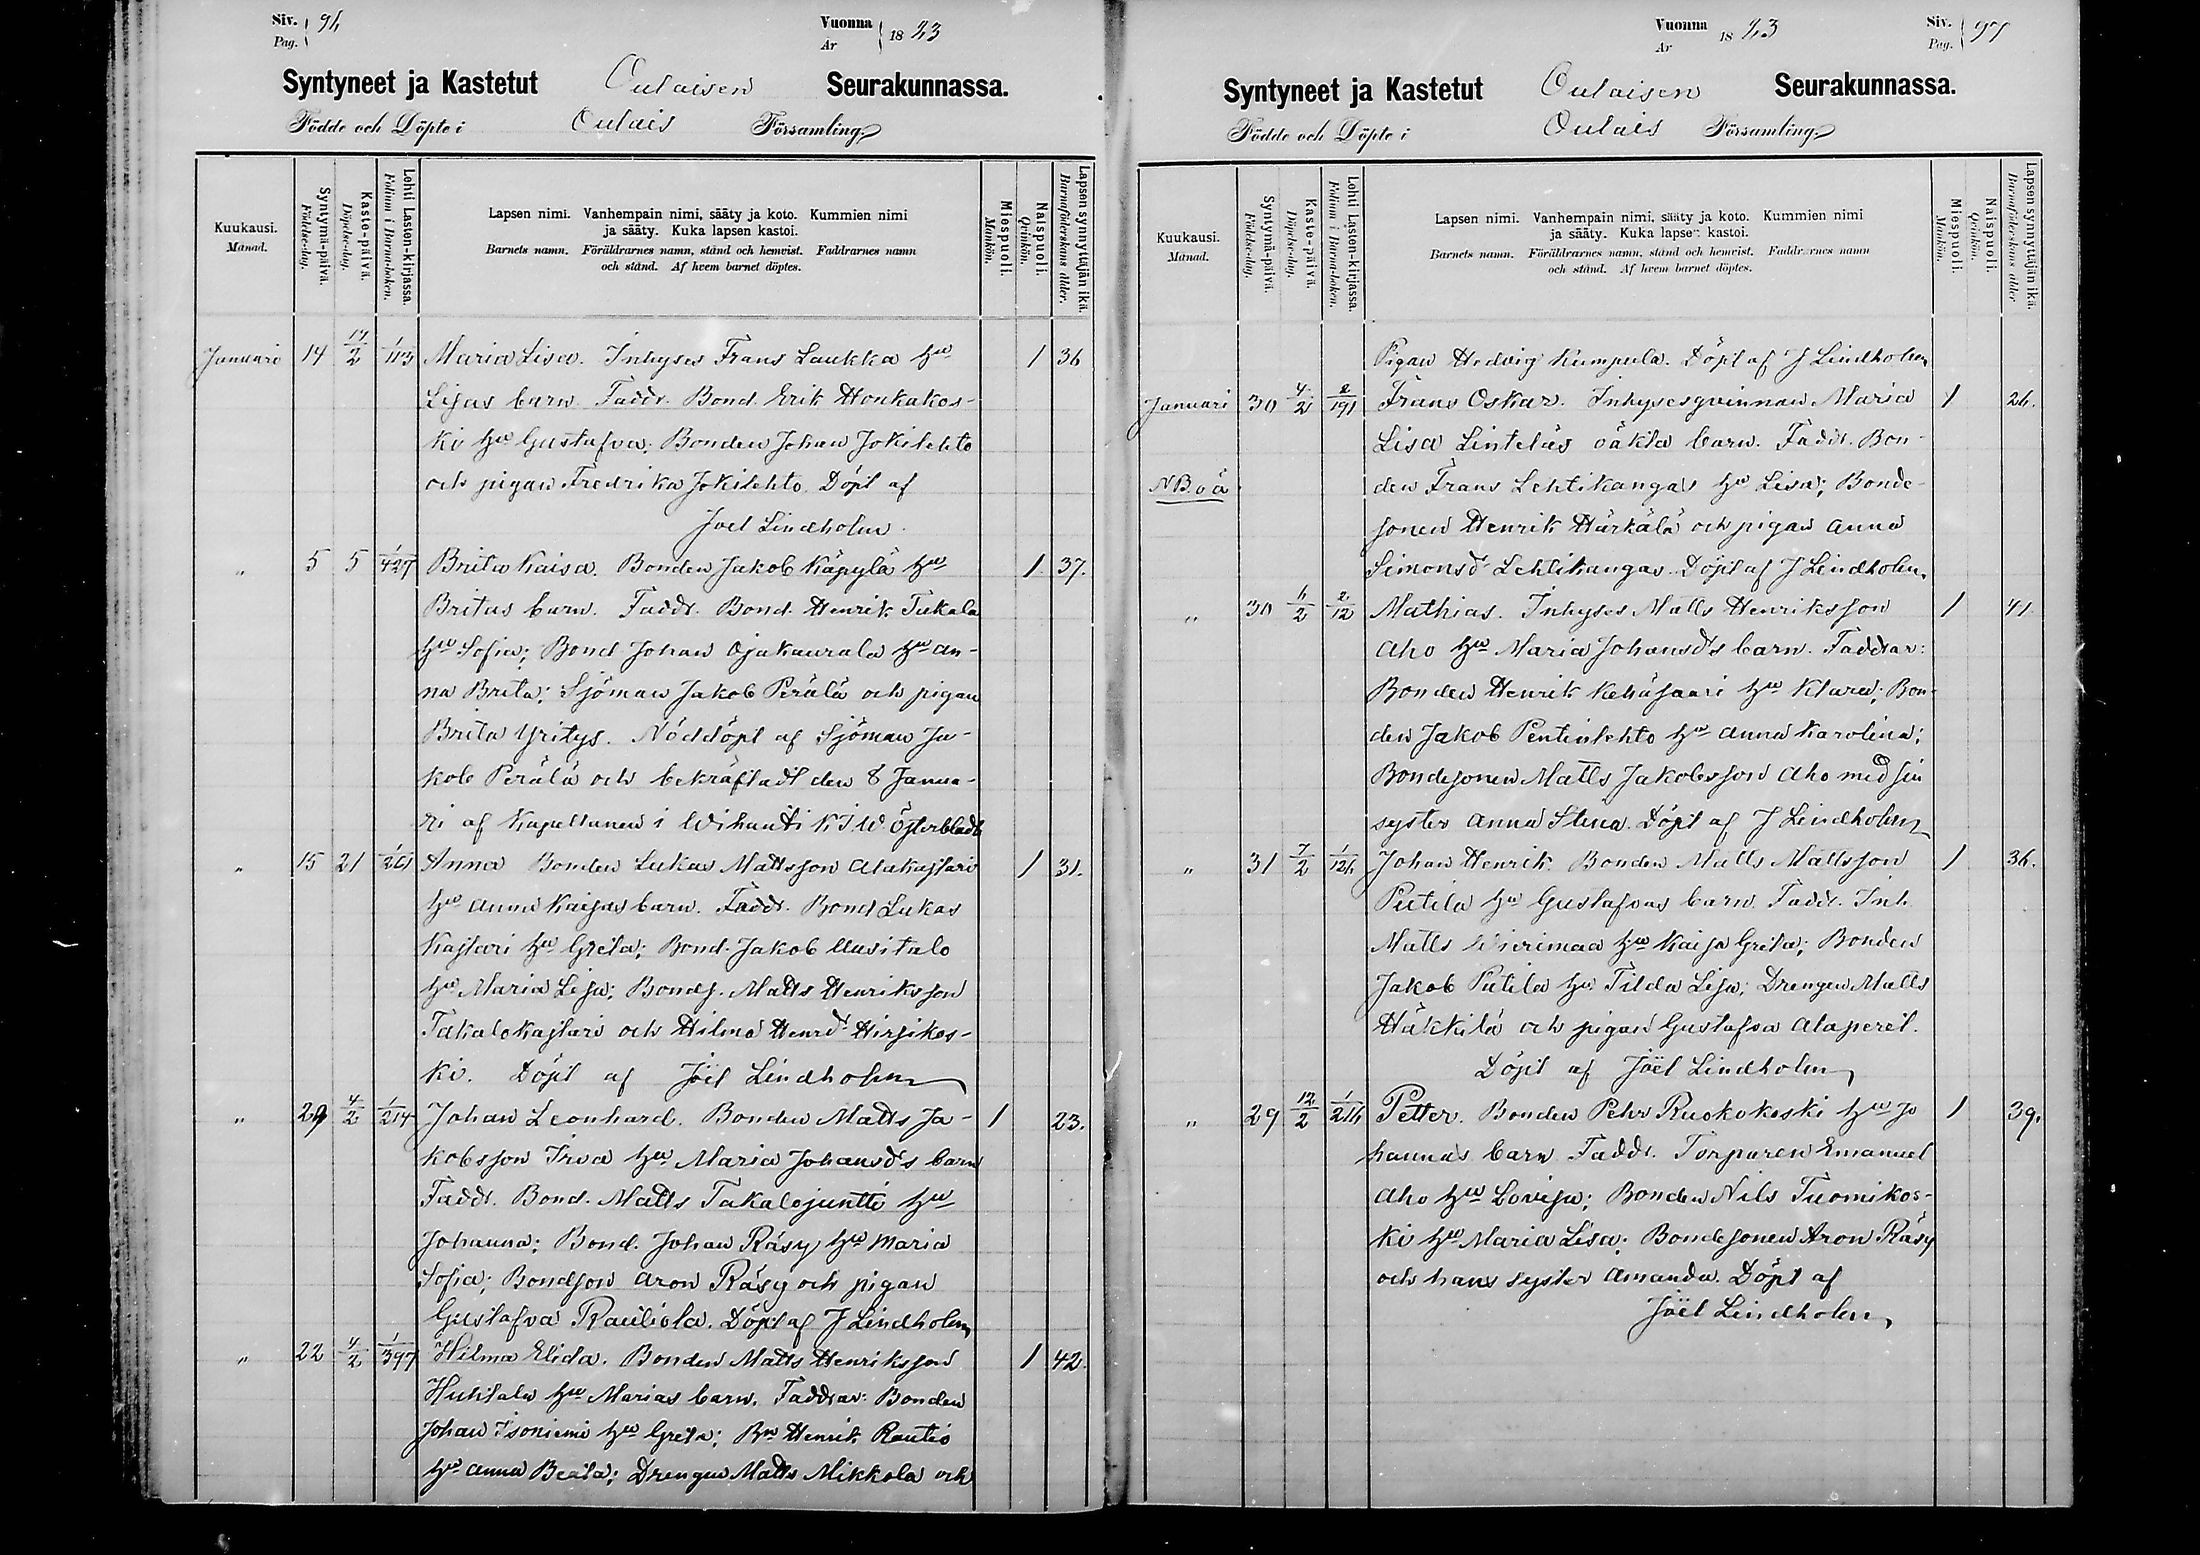 Siv. Pag.
Vuonna År 18 73
Syntyneet ja Kastetut Oulaisen Seurakunnassa.
Födde och Döpte i Oulais Församling
Kuukausi. Månad.
Syntymä-päivä. Födelse-dag.
Kaste-päivä. Döpelse-dag.
Lehti Lasten-kirjassa. Folium i Barna-boken.
Lapsen nimi. Vanhempain nimi, sääty ja koto. Kummien nimi
ja sääty. Kuka lapsen kastoi.
Barnets namn. Föräldrarnes namn, stånd och hemvist. Faddrarnes namn
och stånd. Af hvem barnet döptes.
Miespuoli. Mankön.
Naispuoli. Qvinkön.
Lapsen synnyttäjän ikä. Barnaföderskans ålder.
Januari 14 17/2 1/113 Maria Lisa. Inhyses Frans Laukka hu 1 36
Lisas barn. Faddr. Bond. Erik Honkakos-
ki hu Gustafva; Bonden Johan Jokilehto
och pigan Fredrika Jokilehto. Döpt af
Joel Lindholm.
" 5 5 1/427 Brita Kaisa. Bonden Jakob Käpylä hu 1 37.
Britas barn. Faddr. Bond. Henrik Tukala
hu Sofia; Bond Johan Ojakaurala hu An-
na Brita; Sjöman Jakob Perälä och pigan
Brita Yritys. Nöddöpt af Sjöman Ja-
kob Perälä och bekräftadt den 8 Janua-
ri af Kapellanen i Wihanti K J W Österbladh
" 15 21 1/261 Anna Bonden Lukas Mattsson Alakastari 1 31.
hu Anna Kaisas barn. Faddr. Bond Lukas
Kastari hu Greta; Bond. Jakob Uusitalo
hu Maria Lisa; Bonds. Matts Henriksson
Takalokastari och Hilma Henrd Hirsikos-
ki. Döpt af Joël Lindholm
" 29 4/2 1/214 Johan Leonhard. Bonden Matts Ja- 1 23.
kobsson Irva hu Maria Johansds barn
Faddr. Bond. Matts Takalojuntti hu
Johanna; Bond. Johan Räsy hu Maria
Sofia; Bondson Aron Räsy och pigan
Gustafva Rauliola. Döpt af J Lindholm
" 22 4/2 1/397 Hilma Elida. Bonden Matts Henriksson 1 42.
Huhtala hu Marias barn. Faddrar: Bonden
Johan Isoniemi hu Greta; Bn Henrik Rautio
hu Anna Beata; Drengen Matts Mikkola och
Vuonna År 18 73
Siv. Pag. 97
Syntyneet ja Kastetut Oulaisen Seurakunnassa.
Födde och Döpte i Oulais Församling
Kuukausi. Månad.
Syntymä-päivä. Födelse-dag.
Kaste-päivä. Döpelse-dag.
Lehti Lasten-kirjassa. Folium i Barna-boken.
Lapsen nimi. Vanhempain nimi, sääty ja koto. Kummien nimi
ja sääty. Kuka lapsen kastoi.
Barnets namn. Föräldrarnes namn, stånd och hemvist. Faddrarnes namn
och stånd. Af hvem barnet döptes.
Miespuoli. Mankön.
Naispuoli. Qvinkön.
Lapsen synnyttäjän ikä. Barnaföderskans ålder
Pigan Hedvig Kumpula. Döpt af J Lindholm
Januari 30 4/2 2/191 Frans Oskar. Inhysesqvinnan Maria 1 26.
Lisa Lintelas oäkta barn. Faddr. Bon-
NB oä den Frans Lehtikangas hu Lisa; Bonde-
sonen Henrik Härkälä och pigan Anna
Simonsd Lehtikangas. Döpt af J Lindholm
" 30 6/2 2/12 Mathias. Inhyses Matts Henriksson 1 41
Aho hu Maria Johansds barn. Faddrar:
Bonden Henrik Kehusaari hu Klara; Bon-
den Jakob Pentinlehto hu Anna Karolina;
Bondesonen Matts Jakobsson Aho med sin
syster Anna Stina. Döpt af J Lindholm
" 31 7/2 1/126 Johan Henrik. Bonden Matts Mattsson 1 36.
Putila hu Gustafvas barn. Faddr. Inh.
Matts Wierimaa hu Kaisa Greta; Bonden
Jakob Putila hu Tilda Lisa; Drengen Matts
Häkkilä och pigan Gustafva Alaperet.
Döpt af Joël Lindholm
" 29 12/2 1/216 Petter. Bonden Pehr Ruokokoski hu Jo 1 39.
hannas barn Faddr. Torparen Emanuel
Aho hu Lovisa; Bonden Nils Tuomikos-
ki hu Maria Lisa; Bondesonen Aron Räsy
och hans syster Amanda. Döpt af
Joël Lindholm